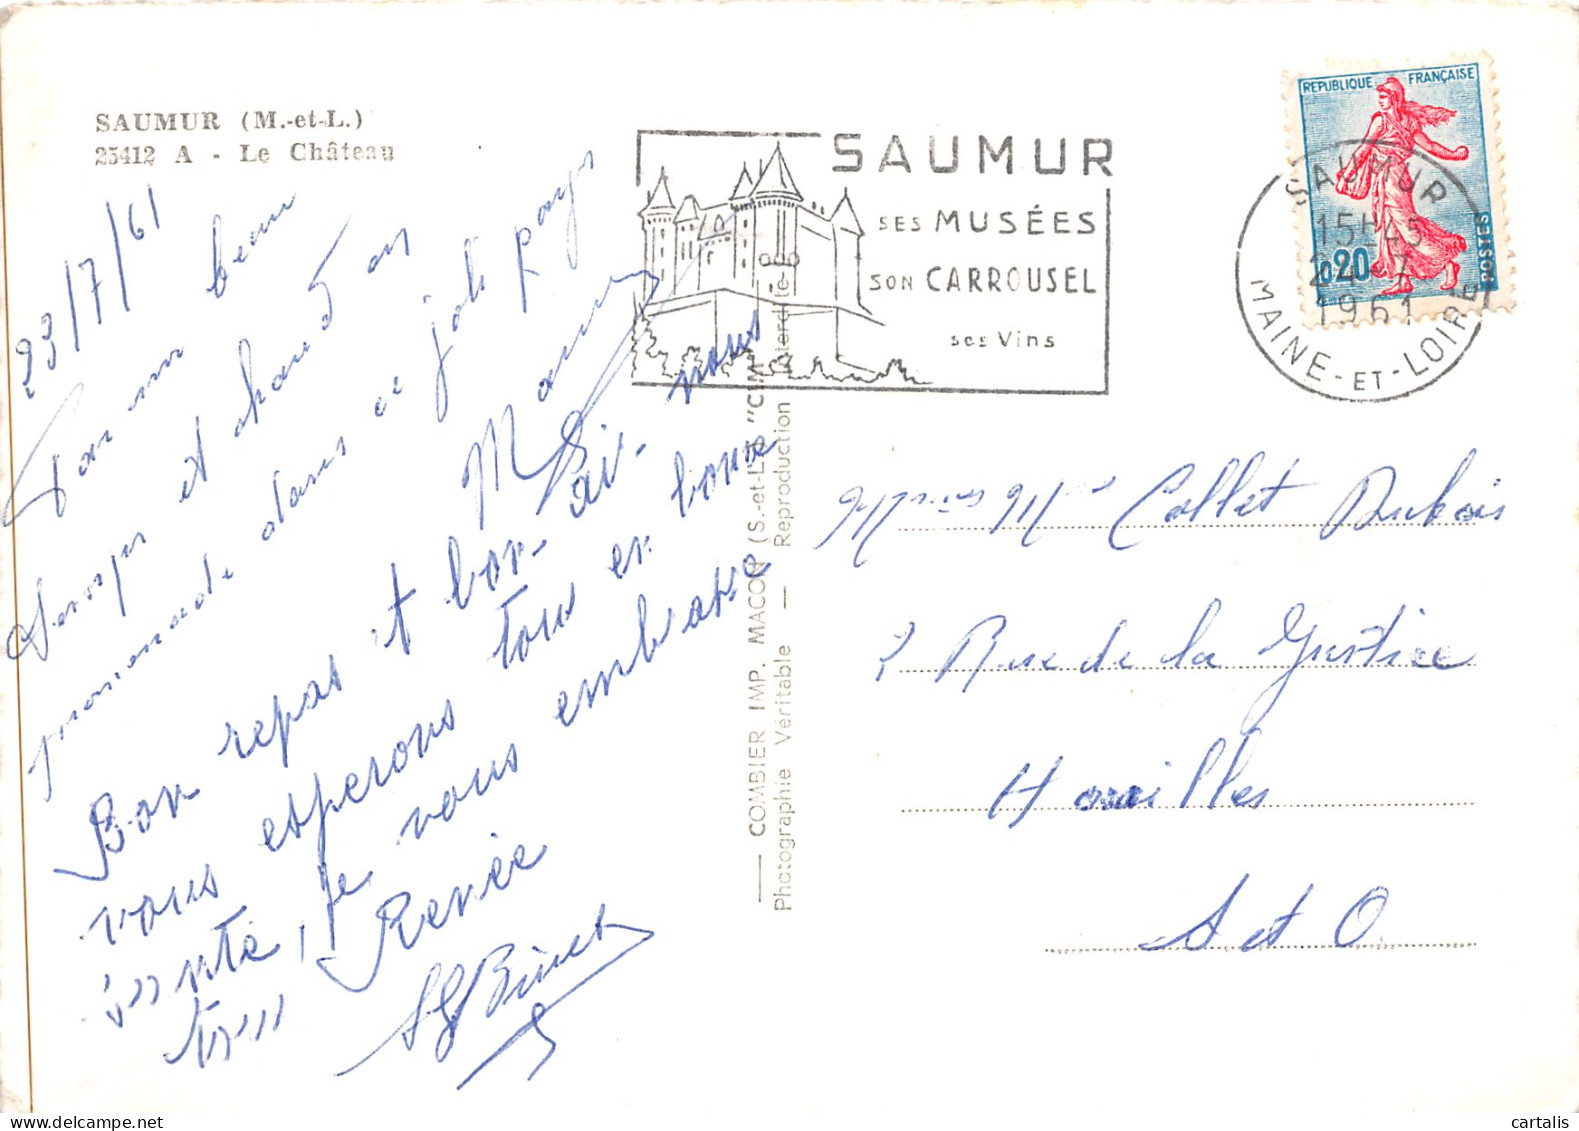 SAUMUR (M.-et-L.)
25412 A - Le Château
23/7/61
Par un beau
temps et chaud on
promenade dans ce joli pays
Bon repas et bon air. nous
vous esperons tous en bonne
santé, je vous embrasse
tous Renée
SAUMUR
SES MUSÉES
SON CARROUSEL
ses Vins
REPUBLIQUE FRANÇAISE
0,20
POSTES
SAUMUR
15H45
24-7
1961
MAINE-ET-LOIRE
COMBIER IMP. MACON (S.-et-L.) "CIM"
Photographie Véritable — Reproduction Interdite
Collet Dubois
2 Rue de la Justice
Houilles
S et O
cartalis
www.delcampe.net